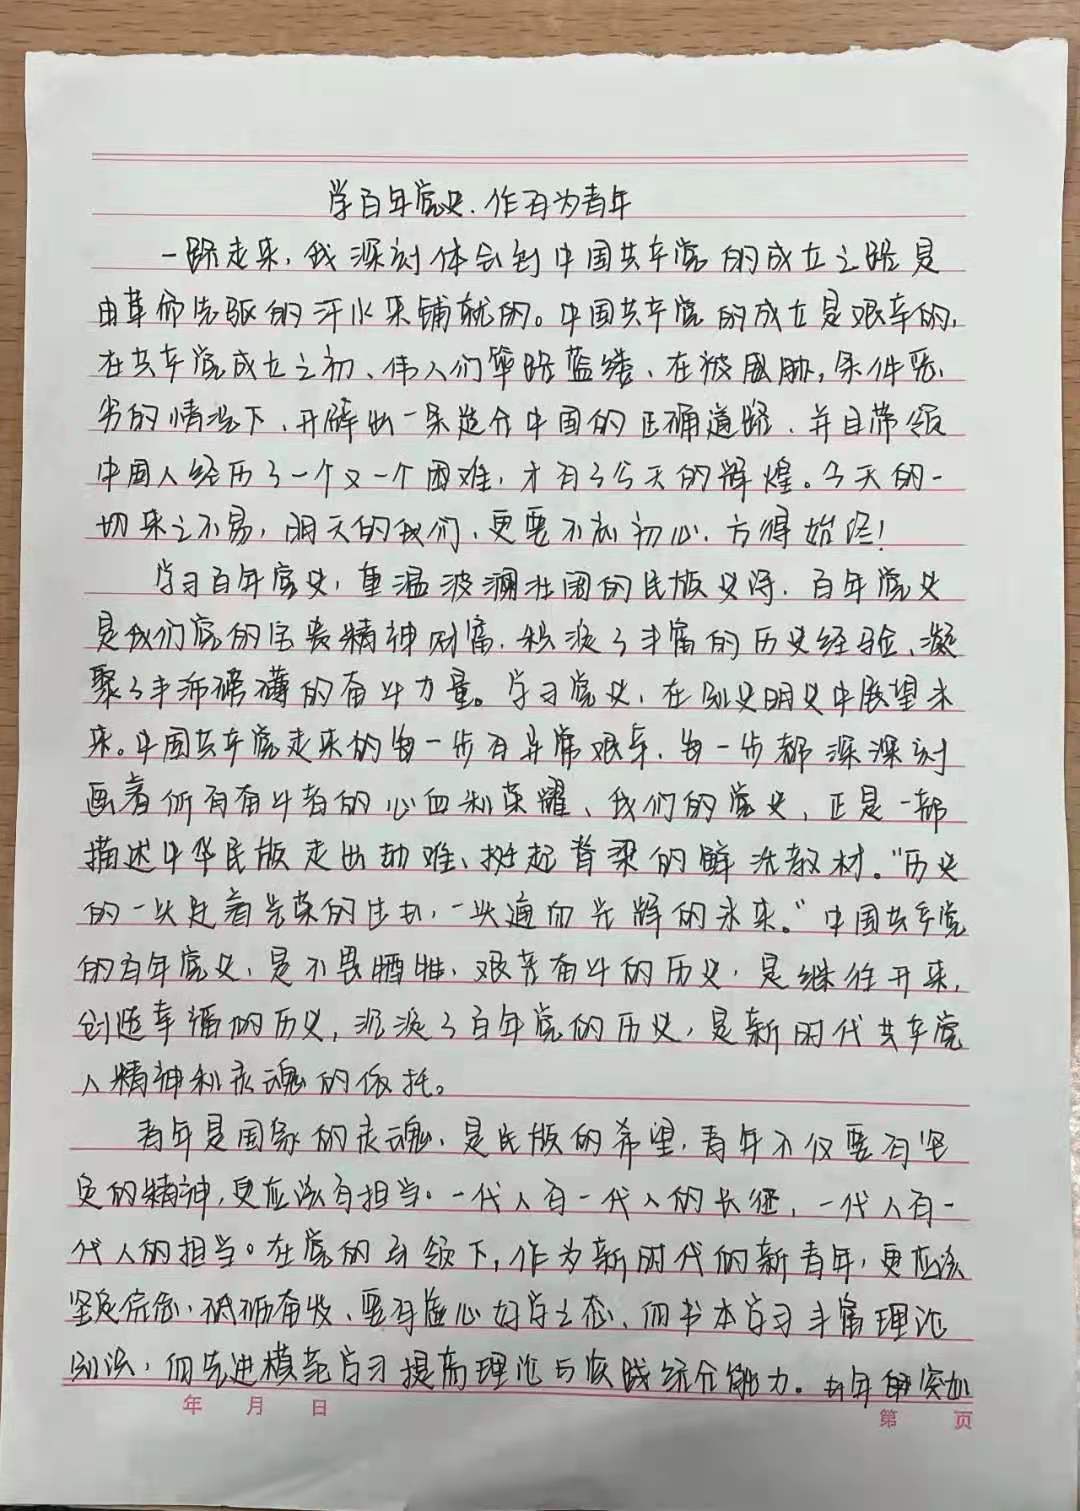 学百年党史、作有为青年
一路走来，我深刻体会到中国共产党的成立之路是
由革命先驱的汗水来铺就的。中国共产党的成立是艰辛的，
在共产党成立之初、伟人们筚路蓝缕、在被威胁，条件恶
劣的情况下、开辟出一条适合中国的正确道路、并且带领
中国人经历了一个又一个困难，才有了今天的辉煌。今天的一
切来之不易，明天的我们，更要不忘初心、方得始终！
学习百年党史，重温波澜壮阔的民族史诗、百年党史
是我们党的宝贵精神财富、积淀了丰富的历史经验、凝
聚了丰沛磅礴的奋斗力量。学习党史，在知史明史中展望未
来。中国共产党走来的每一步有异常艰辛，每一步都深深刻
画着所有奋斗者的心血和荣耀、我们的党史，正是一部
描述中华民族走出劫难、挺起脊梁的鲜活教材。“历史
的一头是着先辈的，一头通向光辉的未来。”中国共产党
的百年党史，是不畏牺牲、艰苦奋斗的历史，是继往开来，
创造幸福的历史，沉淀了百年党的历史，是新时代共产党
人精神和灵魂的依托。
青年是国家的灵魂、是民族的希望，青年不仅要有坚
定的精神，更应该有担当。一代人有一代人的长征，一代人有一
代人的担当。在党的引领下，作为新时代的新青年，更应该
坚定信念、砥砺奋发、要有虚心好学之态、向书本学习丰富理论
知识，向先进模范学习提高理论与实践综合能力。青年
年 月 日
第 页